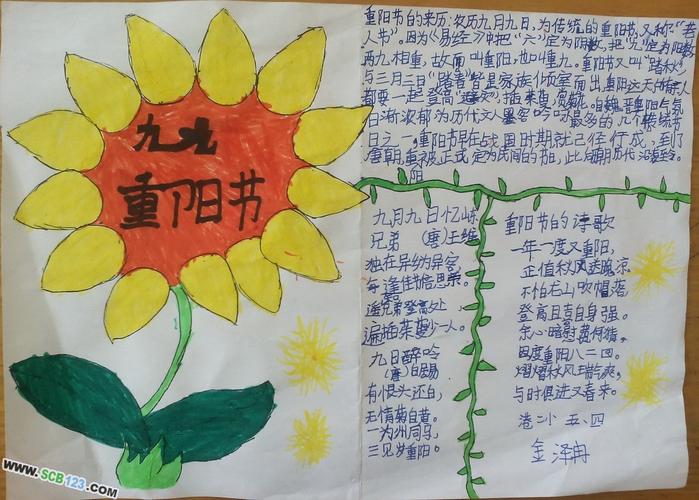 九九
重阳节
重阳节的来历:农历九月九日,为传统的重阳节,又称"老
人节"。因为《易经》中把"六"定为阴数,把"九"定为阳数
两九相重,故而叫重阳,也叫重九。重阳节又叫"踏秋"
与三月三日"踏春"皆是家族倾室而出,重阳这天所有亲人
都要一起登高"避灾",插茱萸
日渐浓郁为历代文人墨客吟咏最多的几个传统节
日之一,重阳节早在战国时期就已经形成,到了
唐朝,重被正式定为民间的节日,此后朝历代沿袭至今
阳
九月九日忆山东
兄弟 (唐)王维
独在异乡为异客
每逢佳节倍思亲。
遥兄弟登高处
遍插茱萸少一人。
九日醉吟
(唐)白居易
有恨头还白,
无情菊自黄。
一为州司马,
三见岁重阳。
重阳节的诗歌
一年一度又重阳,
正值秋风送晚凉
不怕龙山吹帽落
登高且喜自身强。
余心暗慰黄何猎,
四度重阳八二回。
熠熠秋风
与时俱进又春来。
港二小 五、四
金泽冉
www.SCB123.com